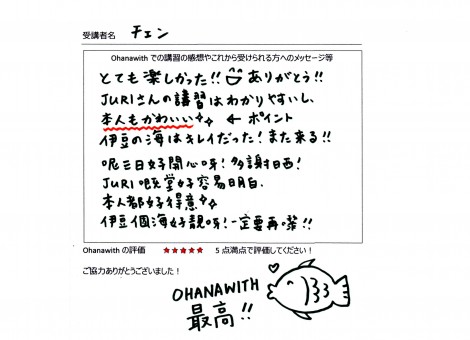 受講者名 チェン
Ohanawith での講習の感想やこれから受けられる方へのメッセージ等
とても楽しかった!! ありがとう!!
JURIさんの講習はわかりやすいし、
本人もかわいい ← ポイント
伊豆の海はキレイだった!また来る!!
呢三日好開心呀!多謝晒!
JURI 嘅堂好容易明白.
本人都好得意
伊豆個海好靚呀!一定要再嚟!!
Ohanawith の評価 ★★★★★ 5 点満点で評価してください!
ご協力ありがとうございました!
OHANAWITH
最高!!